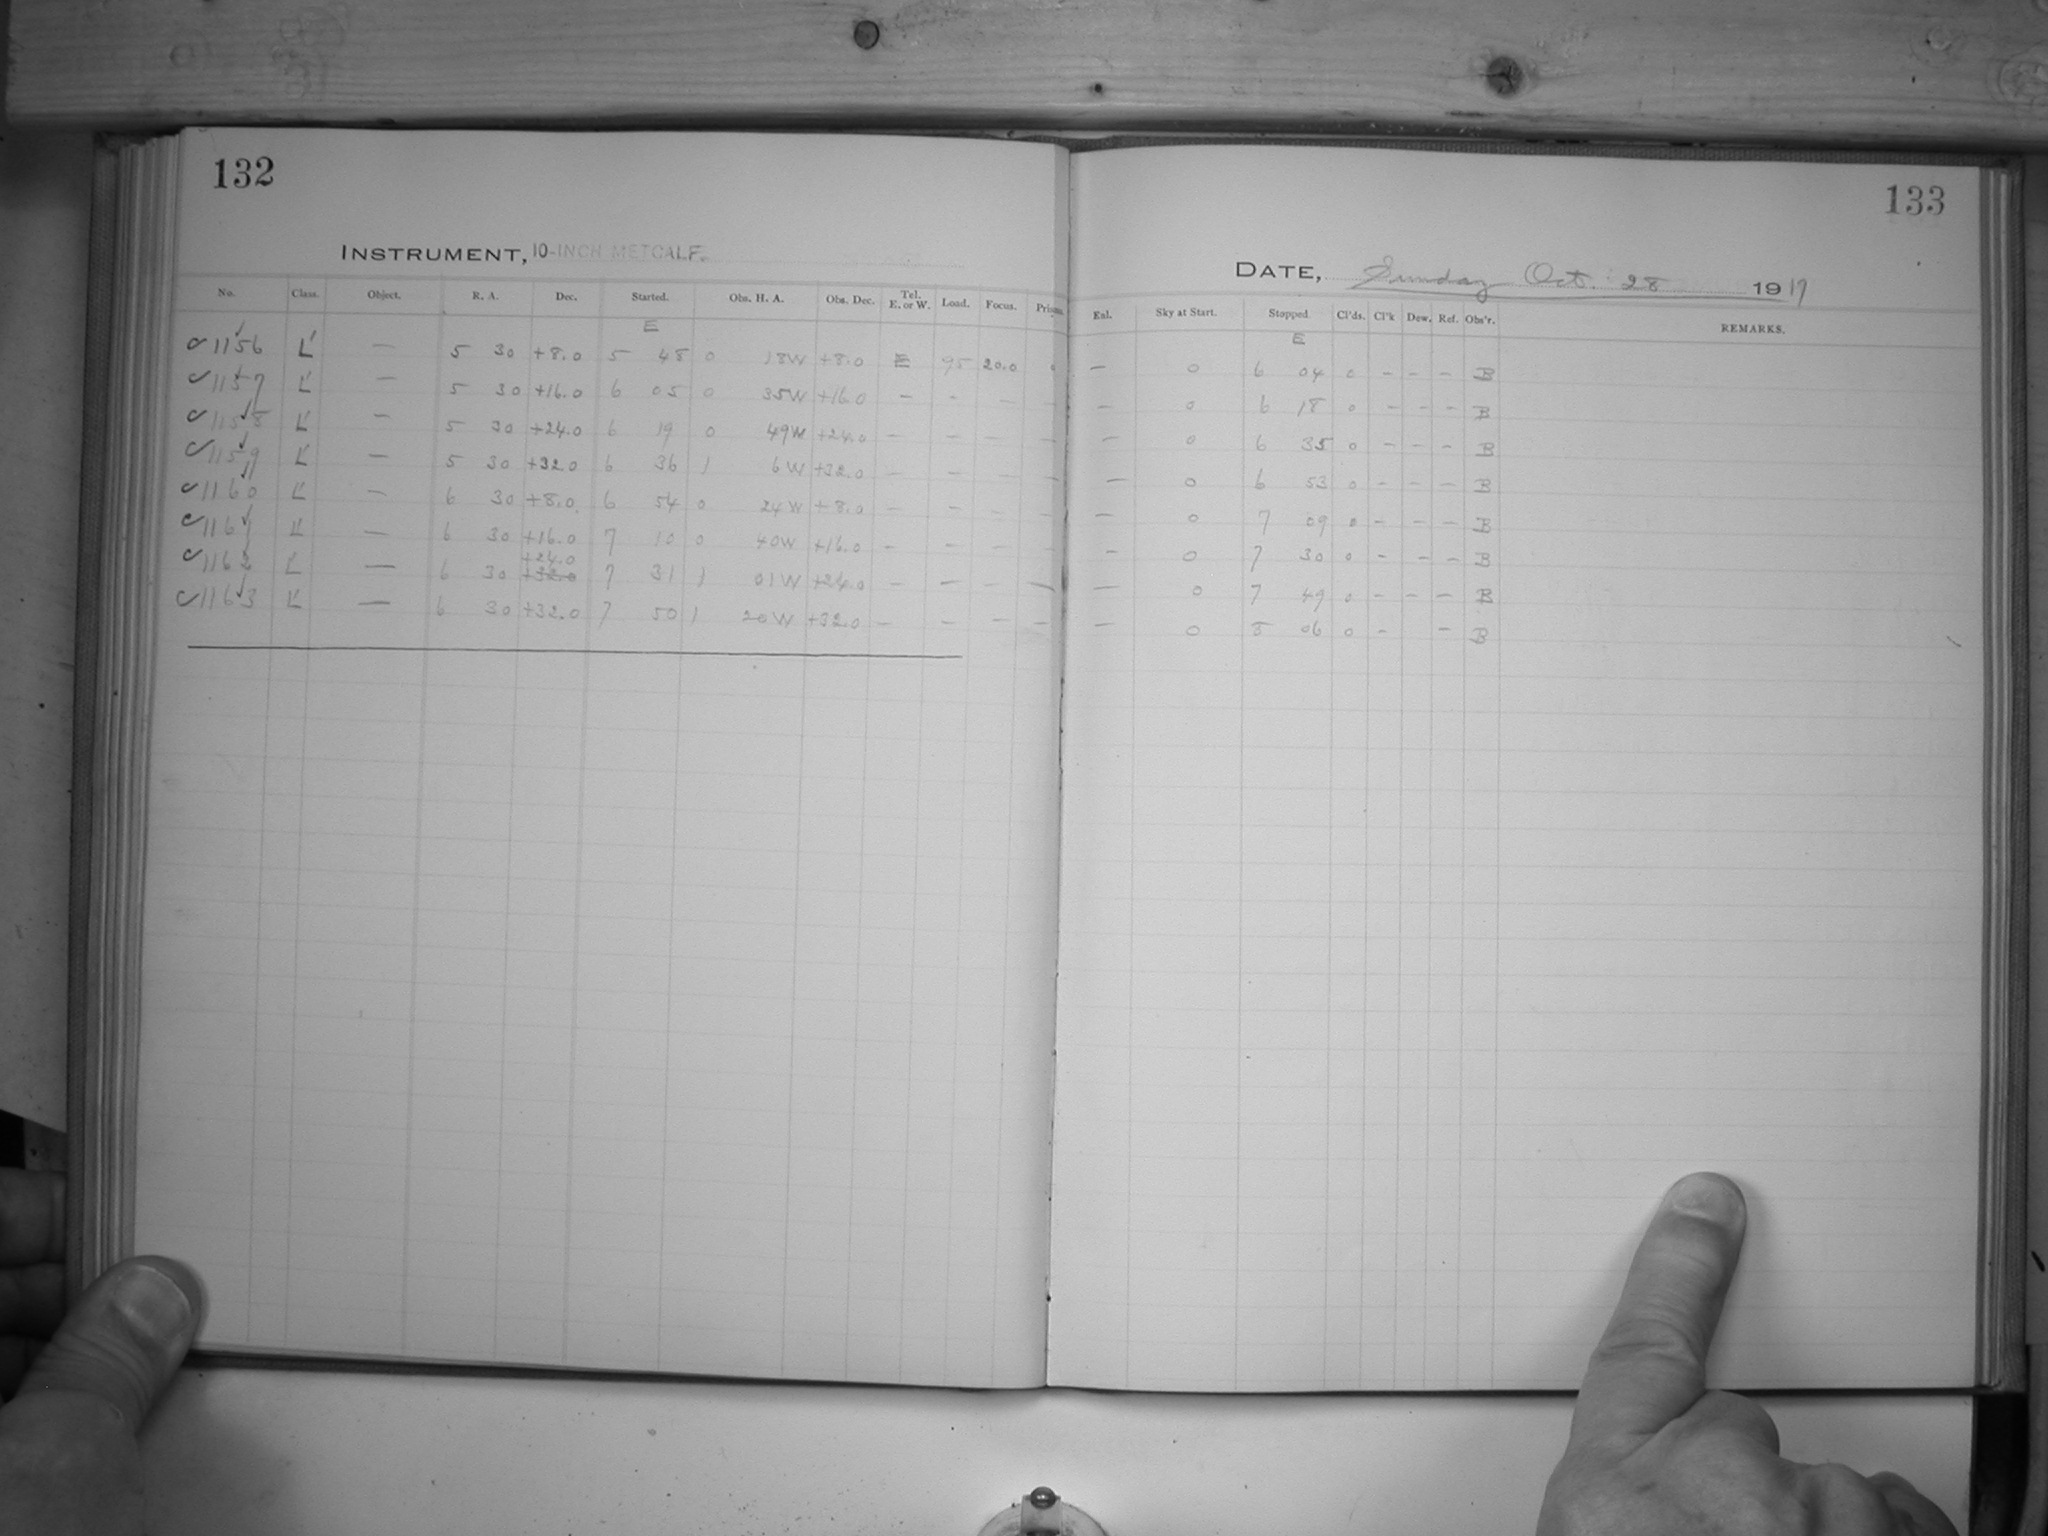 132
133
INSTRUMENT, 10-INCH METCALF.
DATE, Sunday Oct. 28 1917
No. Class. Object. R. A. Dec. Started. Obs. H. A. Obs. Dec. Tel. E. or W. Load. Focus. Prisms. Enl. Sky at Start. Stopped. Cl'ds. Cl'k Dew. Ref. Obs'r. REMARKS.
E E
1156 L' — 5 30 +8.0 5 48 0 18W +8.0 E 95 20.0 0 — 0 6 04 0 - - - B
1157 L' — 5 30 +16.0 6 05 0 35W +16.0 — - — — — 0 6 18 0 - - - B
1158 L' — 5 30 +24.0 6 19 0 49W +24.0 — — — — — 0 6 35 0 - - - B
1159 L' — 5 30 +32.0 6 36 1 6W +32.0 — — — — — 0 6 53 0 - - - B
1160 L' — 6 30 +8.0 6 54 0 24W +8.0 — — — — — 0 7 09 0 - - - B
1161 L' — 6 30 +16.0 7 10 0 40W +16.0 — — — — - 0 7 30 0 - - - B
+24.0
1162 L' — 6 30 +32.0 7 31 1 01W +24.0 — — — — — 0 7 49 0 - - - B
1163 L' — 6 30 +32.0 7 50 1 20W +32.0 — — — — — 0 8 06 0 - - B